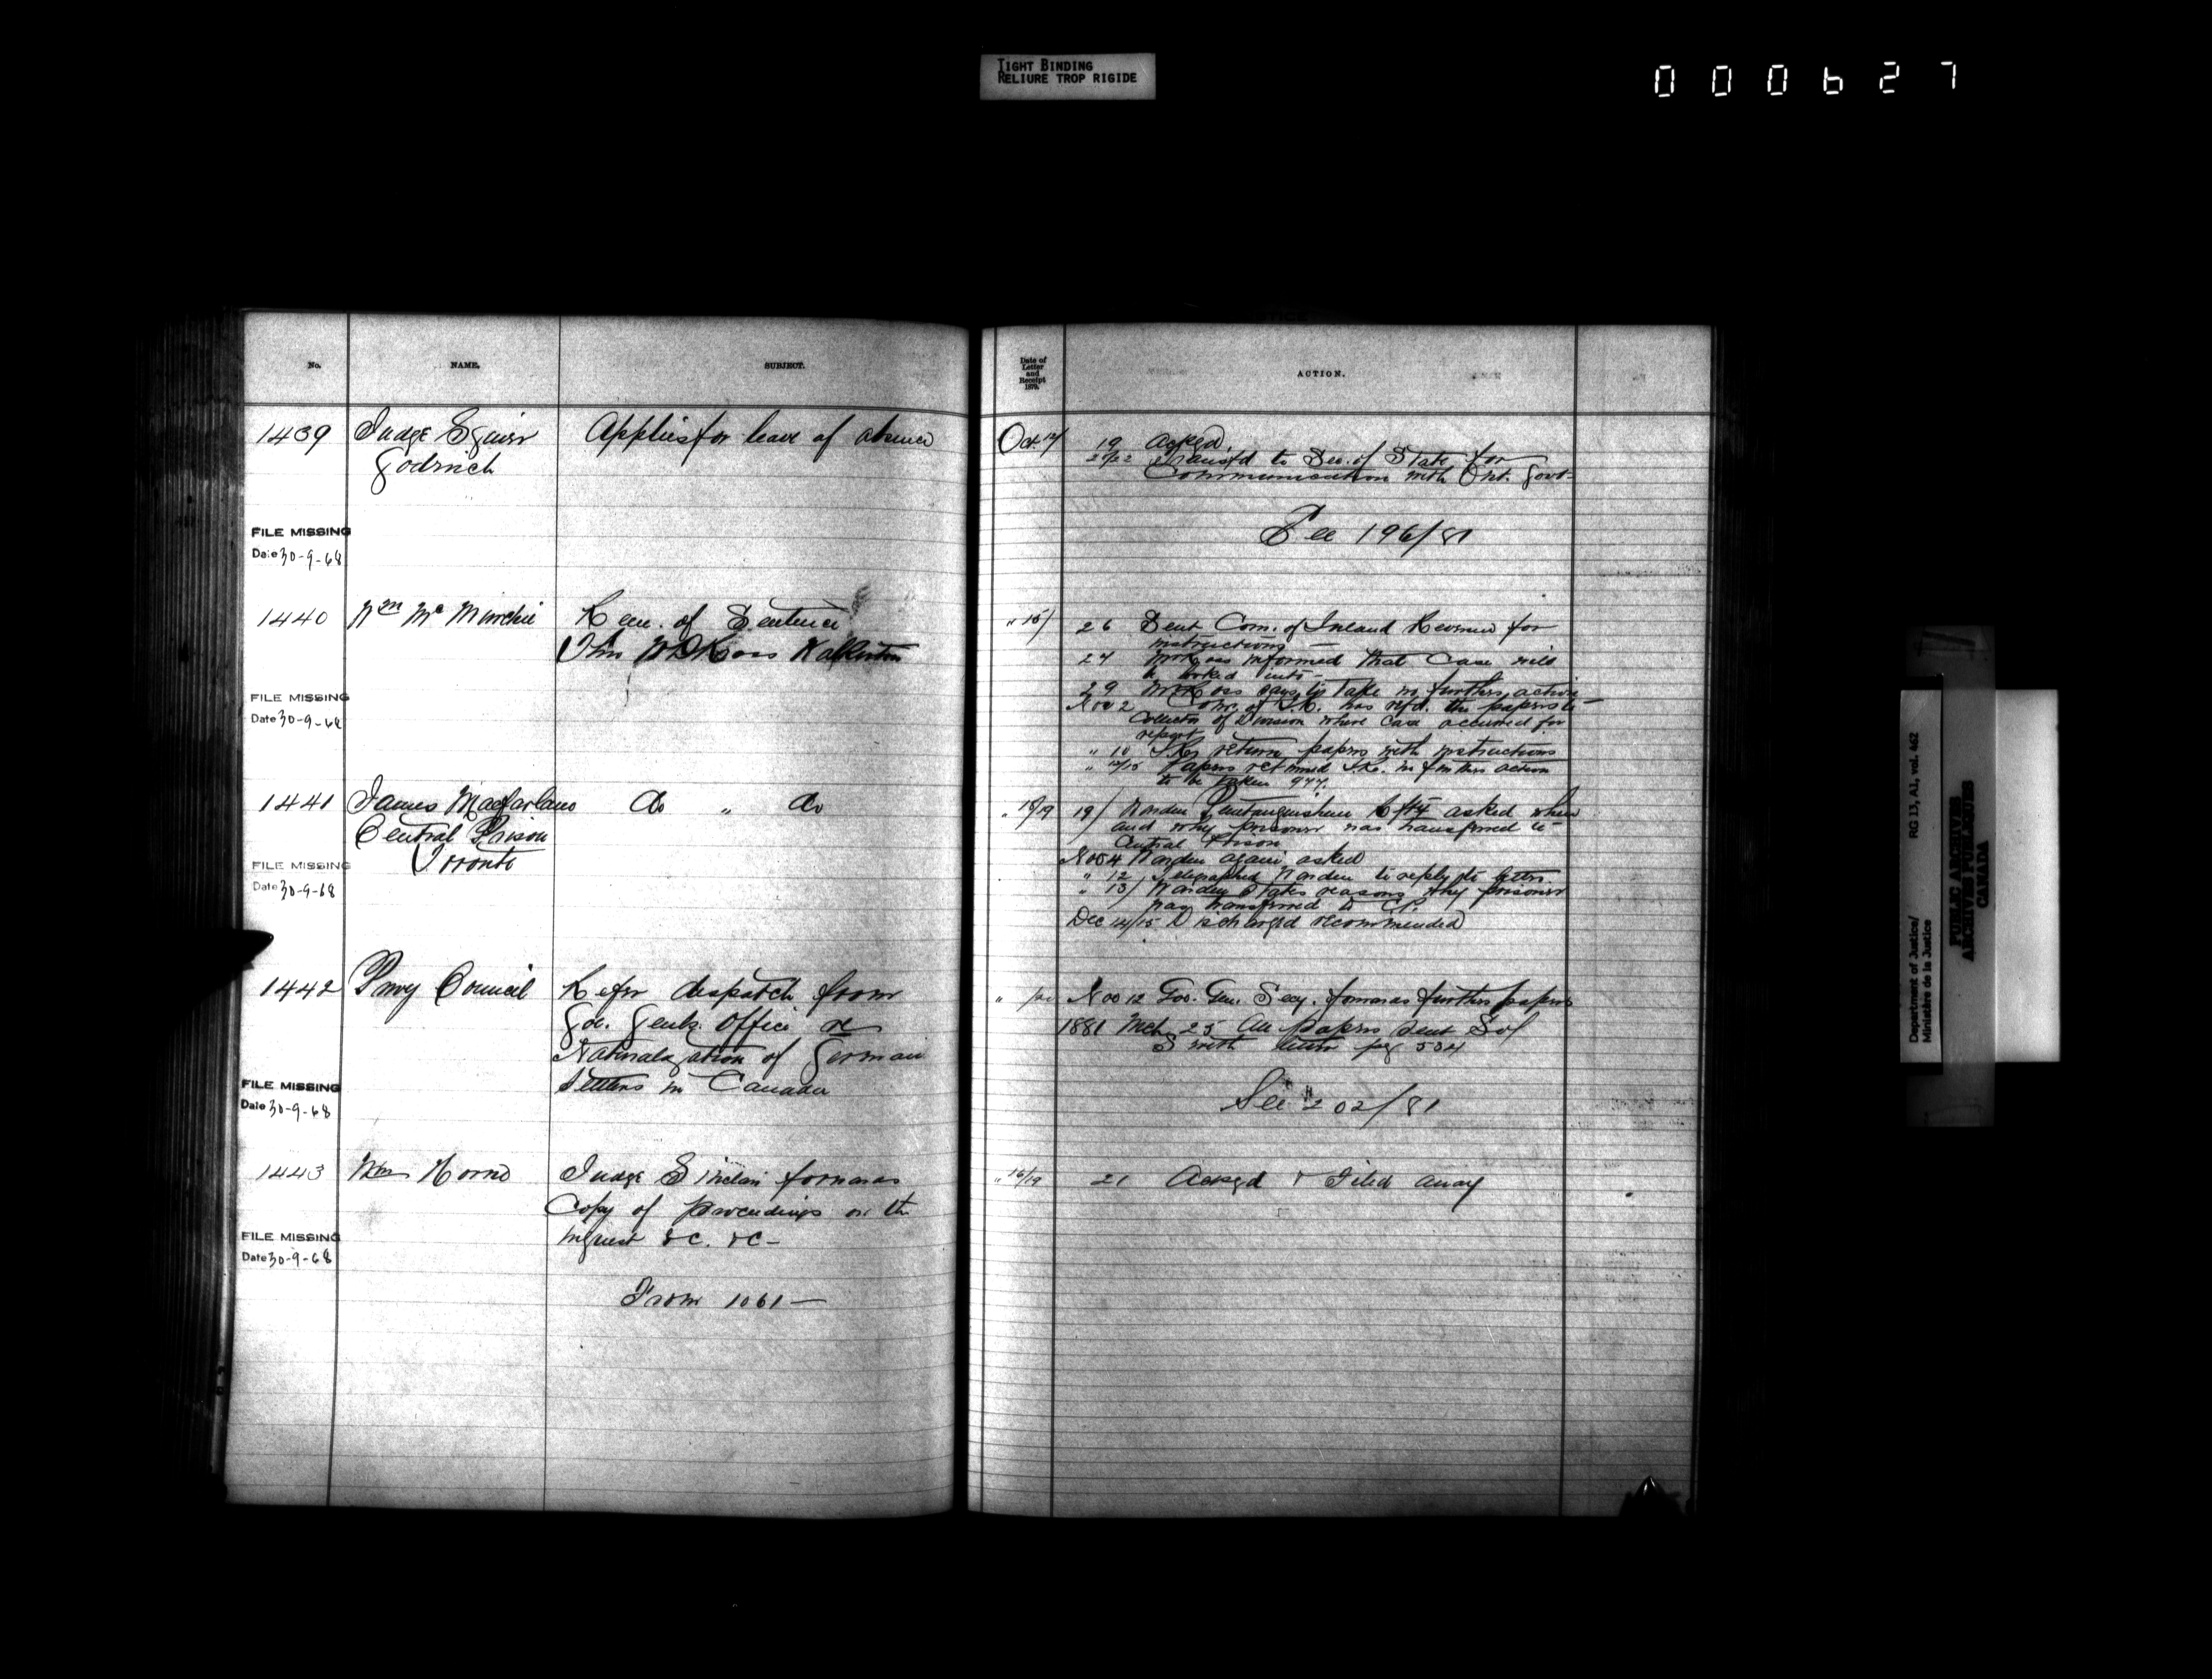 TIGHT BINDING
RELIURE TROP RIGIDE
000627
No.
NAME.
SUBJECT.
1439
Judge Squier
Goderich
Applies for leave of absence
FILE MISSING
Date 30-9-68
1440
Wm McMurchie
Rem. of Sentence
FILE MISSING
Date 30-9-68
1441
James Macfarlane
Central Prison
Toronto
Do " Do
FILE MISSING
Date 30-9-68
1442
Privy Council
Refer despatch from
Gov. Genls. Office re
Naturalization of German
Settlers in Canada
FILE MISSING
Date 30-9-68
1443
Wm Horne
Judge Sinclair forwards
Copy of proceedings on the
inquest &c. &c-
FILE MISSING
Date 30-9-68
From 1061-
Date of
Letter
and
Receipt
1879.
ACTION.
Oct.
19 Ackgd
20/22 Transfd to Sec. of State for
Communication with Ont. Govt-
See 196/81
" 15/
26 Sent Com. of Inland Revenue for
instructions
27 informed that Case will
be looked into-
29 says to take no further action
Nov 2 Com. of I.R. has refd. the papers to
Collector of Division where case occurred for
report
" 10 return papers with instructions
" 12/15 Papers returned I.R. no further action
to be taken 977.
" 18/19
19/ Warden Penetanguishene asked when
and why prisoner was transferred to
Central Prison
Nov 4 Warden again asked
" 12 Telegraphed Warden to reply to letter
" 13/ Warden States reasons why prisoner
was transferred to C.P.
Dec 14/15 Discharge recommended
"
Nov 12 Gov. Gen. Secy. forwards further papers
1881 Mch 25 All papers sent S of
S with letter pg 504
See 202/81
" 16/19
21 Ackgd & Filed away
Department of Justice/
Ministère de la Justice
RG 13, A1, vol. 462
PUBLIC ARCHIVES
ARCHIVES PUBLIQUES
CANADA